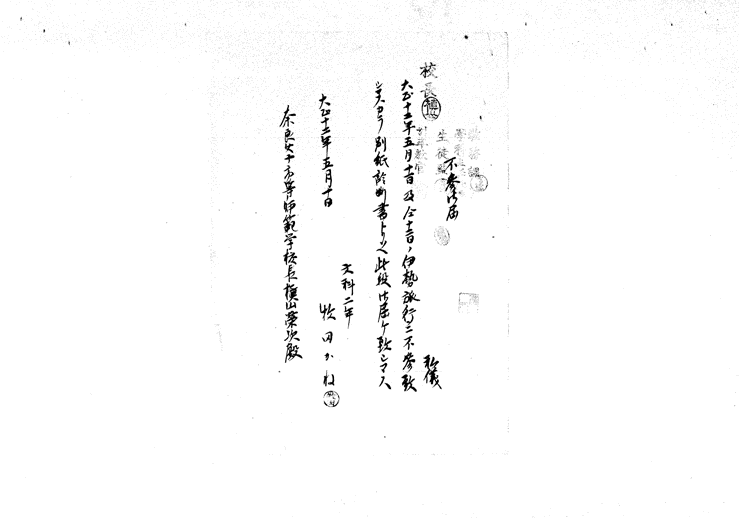 校長
不参御届
私儀
大正十二年五月十一日及仝十二日ノ伊勢旅行ニ不参致
シマスカラ別紙診断書ト共ニ此段御届ケ致シマス
大正十二年五月十日
文科二年
牧田かね
奈良女子高等師範学校長槇山栄次殿